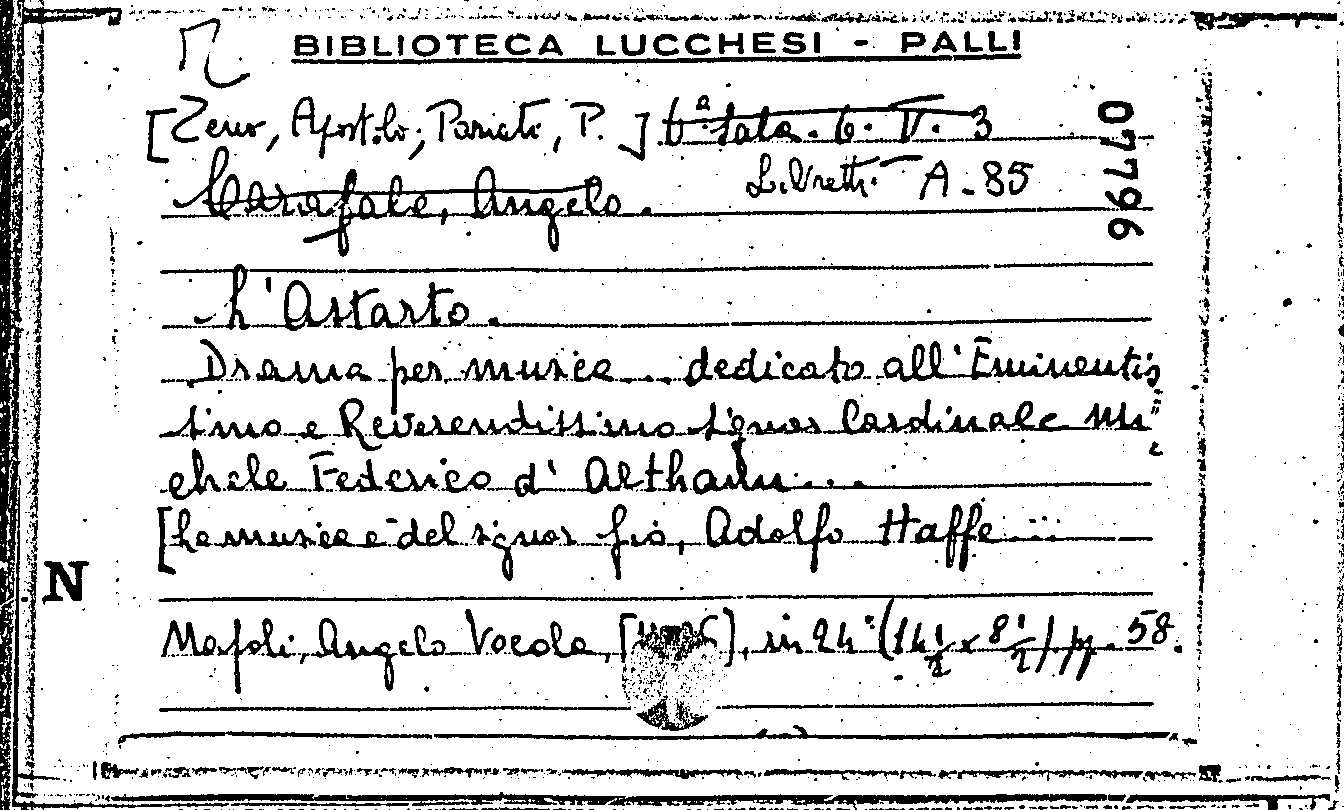 BIBLIOTECA LUCCHESI - PALLI
[Zeno, Apostolo; Pariati, P.] 6ª Sala. 6. V. 3
Carafale, Angelo. Libretti A-85
07796
L'Astarto.
Drama per musica ... dedicato all'Eminentis
simo e Reverendissimo Signor Cardinale Mi
chele Federico d'Althann...
[La musica è del signor Gio, Adolfo Haffe...
N
Napoli, Angelo Vocola, in 24° (14 1/2 x 8 1/2) pp. 58.